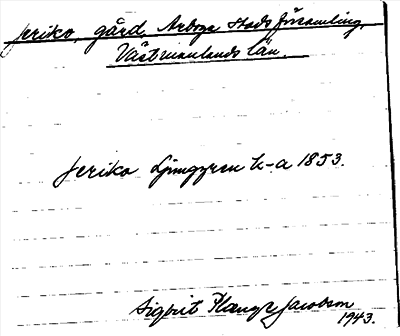 Jeriko, gård, Arboga Stadsförsamling,
Västmanlands län.
Jeriko Ljunggren k-a 1853.
Sigbrit Plænge Jacobson
1943.